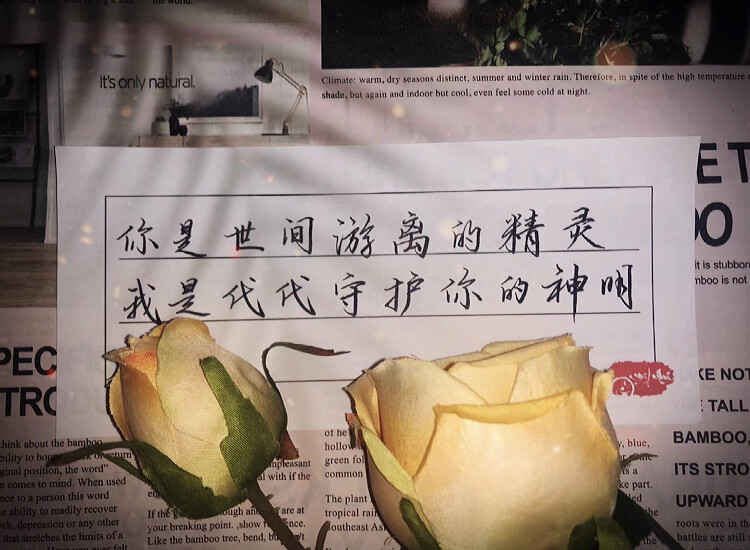 the world.
It's only natural.
Climate: warm, dry seasons distinct, summer and winter rain. Therefore, in spite of the high temperature
shade, but again and indoor but cool, even feel some cold at night.
你是世间游离的精灵
我是代代守护你的神明
E T
OO
it is stubborn
mboo is not
PEC
TRO
think about the bamboo
ability to
ginal position, the word"
comes to mind. When used
nce to a person this word
ability to readily recover
depression or any other
that stretches the limits of a
return
unpleasant
al with if the
If the
your breaking point. ,show
Like the bamboo tree, bend, bu
are at
of he
hollow
green fol
common
The plant
tropical rain
outheast Asi
blue,
is a
ke part.
KE NOT
TALL
BAMBOO,
ITS STRO
UPWARD
roots were in th
battles are still